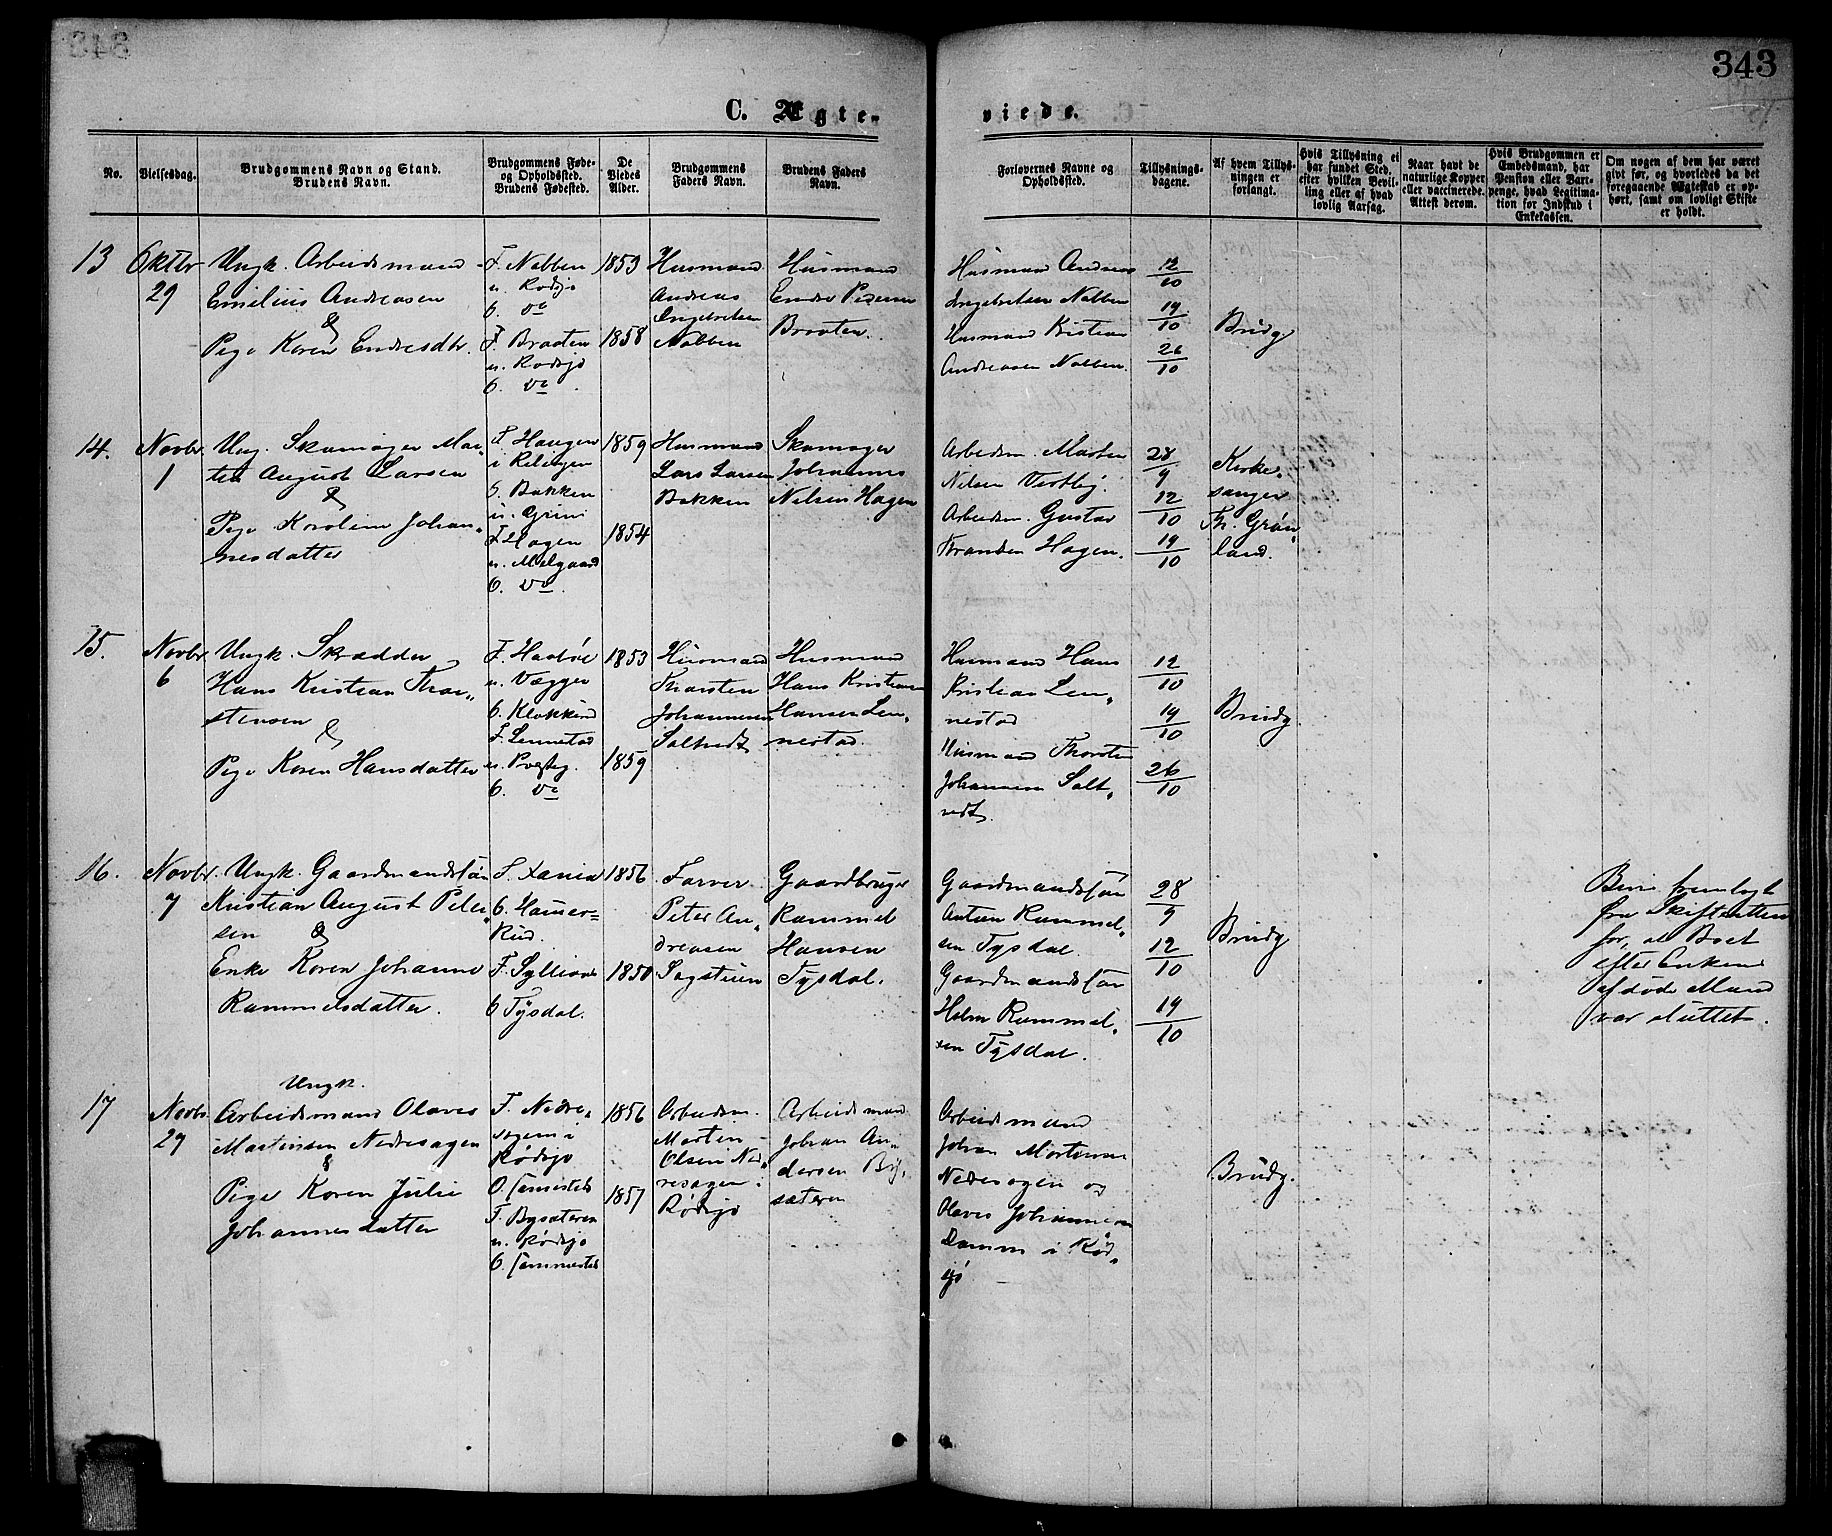 343
C. Ægte-
viede.
No.
Vielsesdag.
Brudgommens Navn og Stand.
Brudens Navn.
Brudgommens Føde-
og Opholdssted.
Brudens Fødested.
De
Viedes
Alder.
Brudgommens
Faders Navn.
Brudens Faders
Navn.
Forlovernes Navne og
Opholdssted.
Tillysnings-
dagene.
Af hvem Tillys-
ningen er
forlangt.
Hvis Tillysning ei
har fundet Sted,
efter hvilken Bevil-
ling eller af hvad
lovlig Aarsag.
Naar havt de
naturlige Kopper
eller vaccinerede.
Attest derom.
Hvis Brudgommen er
Embedsmand, har
Pension eller Vart-
penge, hvad Legitima-
tion for Indskud i
Enkekassen.
Om nogen af dem har været
givt før, og hvorledes da det
foregaaende Ægteskab er op-
hørt, samt om lovligt Skifte
er holdt.
13
Oktbr
29
Ungk. Arbeidsmand
Emilius Andreasen
&
Pige Karen Endresdtr.
F. Nabben
u. Rødsjø
O. do
F. Braaten
u. Rødsjø
O. do
1853
1858
Husmand
Andreas
Engebretsen
Nabben
Husmand
Endre Pedersen
Braaten.
Husmand Andreas
Engebretsen Nabben
Husmand Kristian
Andreasen Nabben.
12/10
19/10
26/10
Brudg
14.
Novbr
1
Ung. Skomager Mar-
tin August Larsen
&
Pige Karoline Johan-
nesdatter
F. Haugen
O. Bakken
u. Grini
F. Hagen
u. Melgaard
O. do.
1859
1854
Husmand
Lars Larsen
Bakken
Skomager
Johannes
Nilsen Hagen
Arbeidsm. Martin
Nilsen Vestby.
Arbeidsm. Gustav
Hagen.
28/9
12/10
19/10
Kirke-
sanger
Th. Grøn-
land.
15.
Novbr
6
Ungk. Skrædder
Hans Kristian Thor-
stensen
&
Pige Karen Hansdatter
u. Vegger
F. Lennestad
O. do
1853
1859
Husmand
Thorsten
Johannesen
Saltvedt
Husmand
Hans Kristian
Hansen Len-
nestad.
Husmand Hans
Kristian Len-
nestad
Husmand Thorsten
Johannesen Salt-
vedt.
12/10
19/10
26/10
Brudg.
16.
Novbr.
7
Ungk. Gaardmandssøn
Kristian August Peter-
sen &
Enke Karen Johanne
Rammelsdatter.
F. Xania
O. Hauer-
Rud.
O Tysdal.
1856
1850
Farver
Peter An-
dreasen
Sagstuen
Gaardbruger
Rammel
Hansen
Tysdal.
Gaardmandssøn
Anton Rammel-
sen Tysdal.
Gaardmandssøn
Rammel-
sen Tysdal.
28/9
12/10
19/10
Brudg
Bevis fremlagt
fra Skifteretten
for, at Boet
efter Enkens
afdøde Mand
var sluttet.
17
Novbr
29
Ungk.
Arbeidsmand Olaves
Martinsen Nedresagen
&
Pige Karen Julie
Johannesdatter
F. Nedre-
sagen i
Rødsjø
O. sammested
F. Bysæteren
u. Rødsjø
O. sammested
1856
1857
Arbeidsm.
Martin
Olsen Ned-
resagen i
Rødsjø
Arbeidsmand
Johan An-
dersen By-
sæteren
Arbeidsmand
Johan Martinsen
Nedresagen og
Olaves Johannesen
Damm i Rød-
sjø
Brudg.